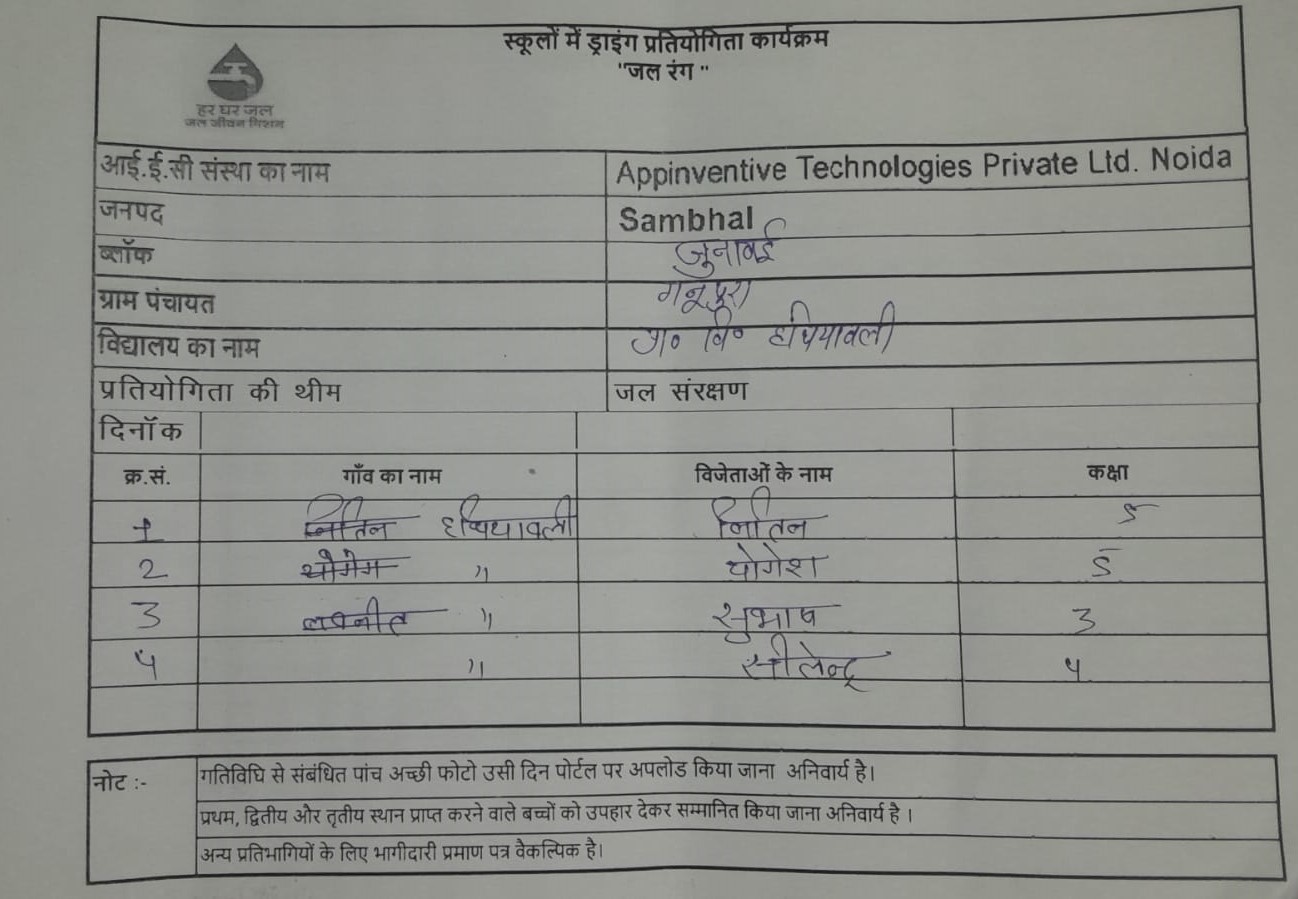 स्कूलों में ड्राइंग प्रतियोगिता कार्यक्रम
"जल रंग "
हर घर जल
जल जीवन मिशन
आई.ई.सी संस्था का नाम Appinventive Technologies Private Ltd. Noida
जनपद Sambhal
ब्लॉक जुनावई
ग्राम पंचायत
विद्यालय का नाम प्रा० वि० हथियावली
प्रतियोगिता की थीम जल संरक्षण
दिनॉक
क्र.सं. गाँव का नाम विजेताओं के नाम कक्षा
1 नितिन हथियावली नितिन 5
2 " योगेश 5
3 " सुभाष 3
4 " सीलेन्द्र 4
नोट :- गतिविधि से संबंधित पांच अच्छी फोटो उसी दिन पोर्टल पर अपलोड किया जाना अनिवार्य है।
प्रथम, द्वितीय और तृतीय स्थान प्राप्त करने वाले बच्चों को उपहार देकर सम्मानित किया जाना अनिवार्य है ।
अन्य प्रतिभागियों के लिए भागीदारी प्रमाण पत्र वैकल्पिक है।